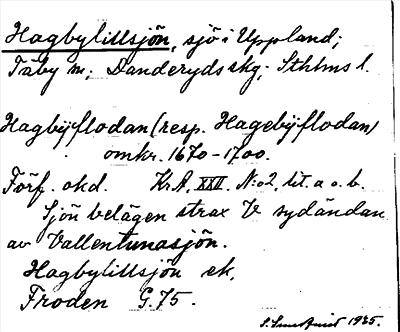 Hagbylillsjön, sjö i Uppland;
Täby sn; Danderyds skg; Sthlms l.
Hagbÿflodan (resp. Hagebÿflodan)
omkr. 1670-1700.
Förf. okd. Kr.A. XXII. N:o 2, lit. a o. b.
Sjön belägen strax V sydändan
av Vallentunasjön.
Hagbylillsjön ek,
Froden G.75.
1925.